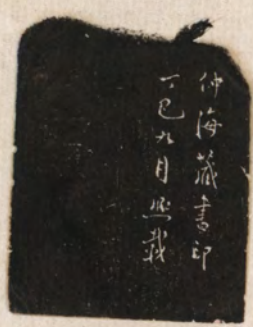 仲海藏書印
丁巳九月熙載